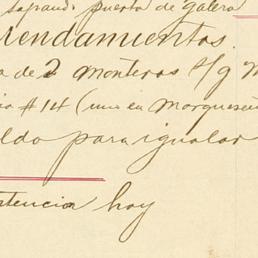 zaguan: puerta de galera
rendamientos.
a de 2 monteras s/g
#14 (una en Marqueseñ
ldo para igualar
stencia hoy